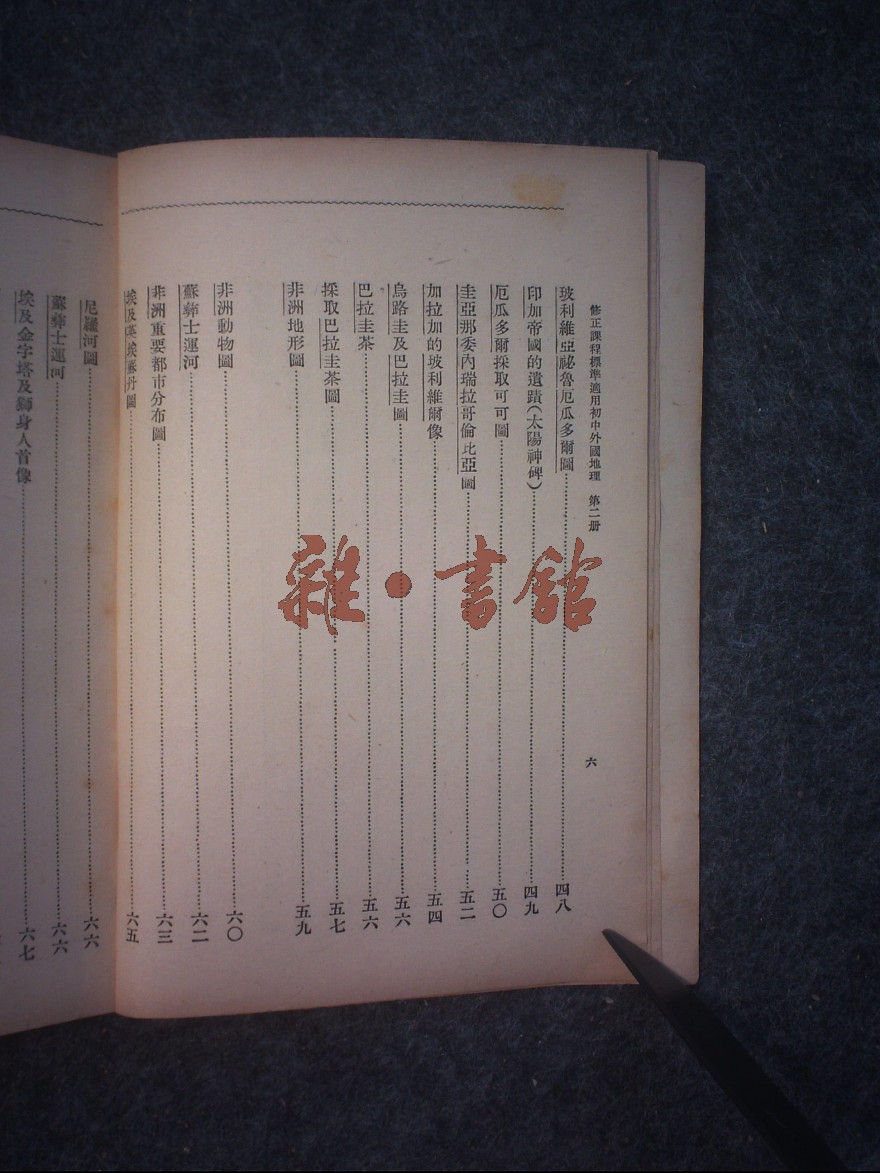 修正課程標準適用初中外國地理　第二册
六
玻利維亞祕魯厄瓜多爾圖……四八
印加帝國的遺蹟(太陽神碑)……四九
厄瓜多爾採取可可圖……五〇
圭亞那委內瑞拉哥倫比亞圖……五二
加拉加的玻利維爾像……五四
烏路圭及巴拉圭圖……五六
巴拉圭茶……五六
採取巴拉圭茶圖……五七
非洲地形圖……五九
非洲動物圖……六〇
蘇彝士運河……六二
非洲重要都市分布圖……六三
埃及英埃蘇丹圖……六五
尼羅河圖……六六
蘇彝士運河……六六
埃及金字塔及獅身人首像……六七
雜·書館